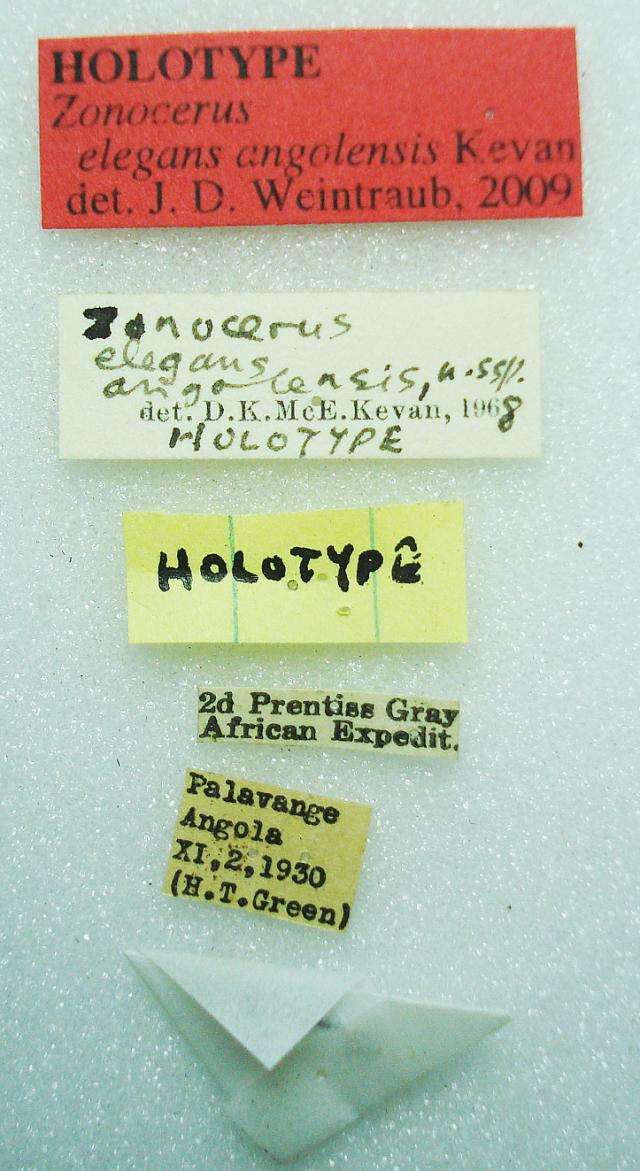 HOLOTYPE
Zonocerus
elegans angolensis Kevan
det. J. D. Weintraub, 2009
Zonocerus
elegans
angolensis, n.ssp.
det. D.K.McE.Kevan, 1968
HOLOTYPE
HOLOTYPE
2d Prentiss Gray
African Expedit.
Palavange
Angola
XI,2,1930
(H.T.Green)